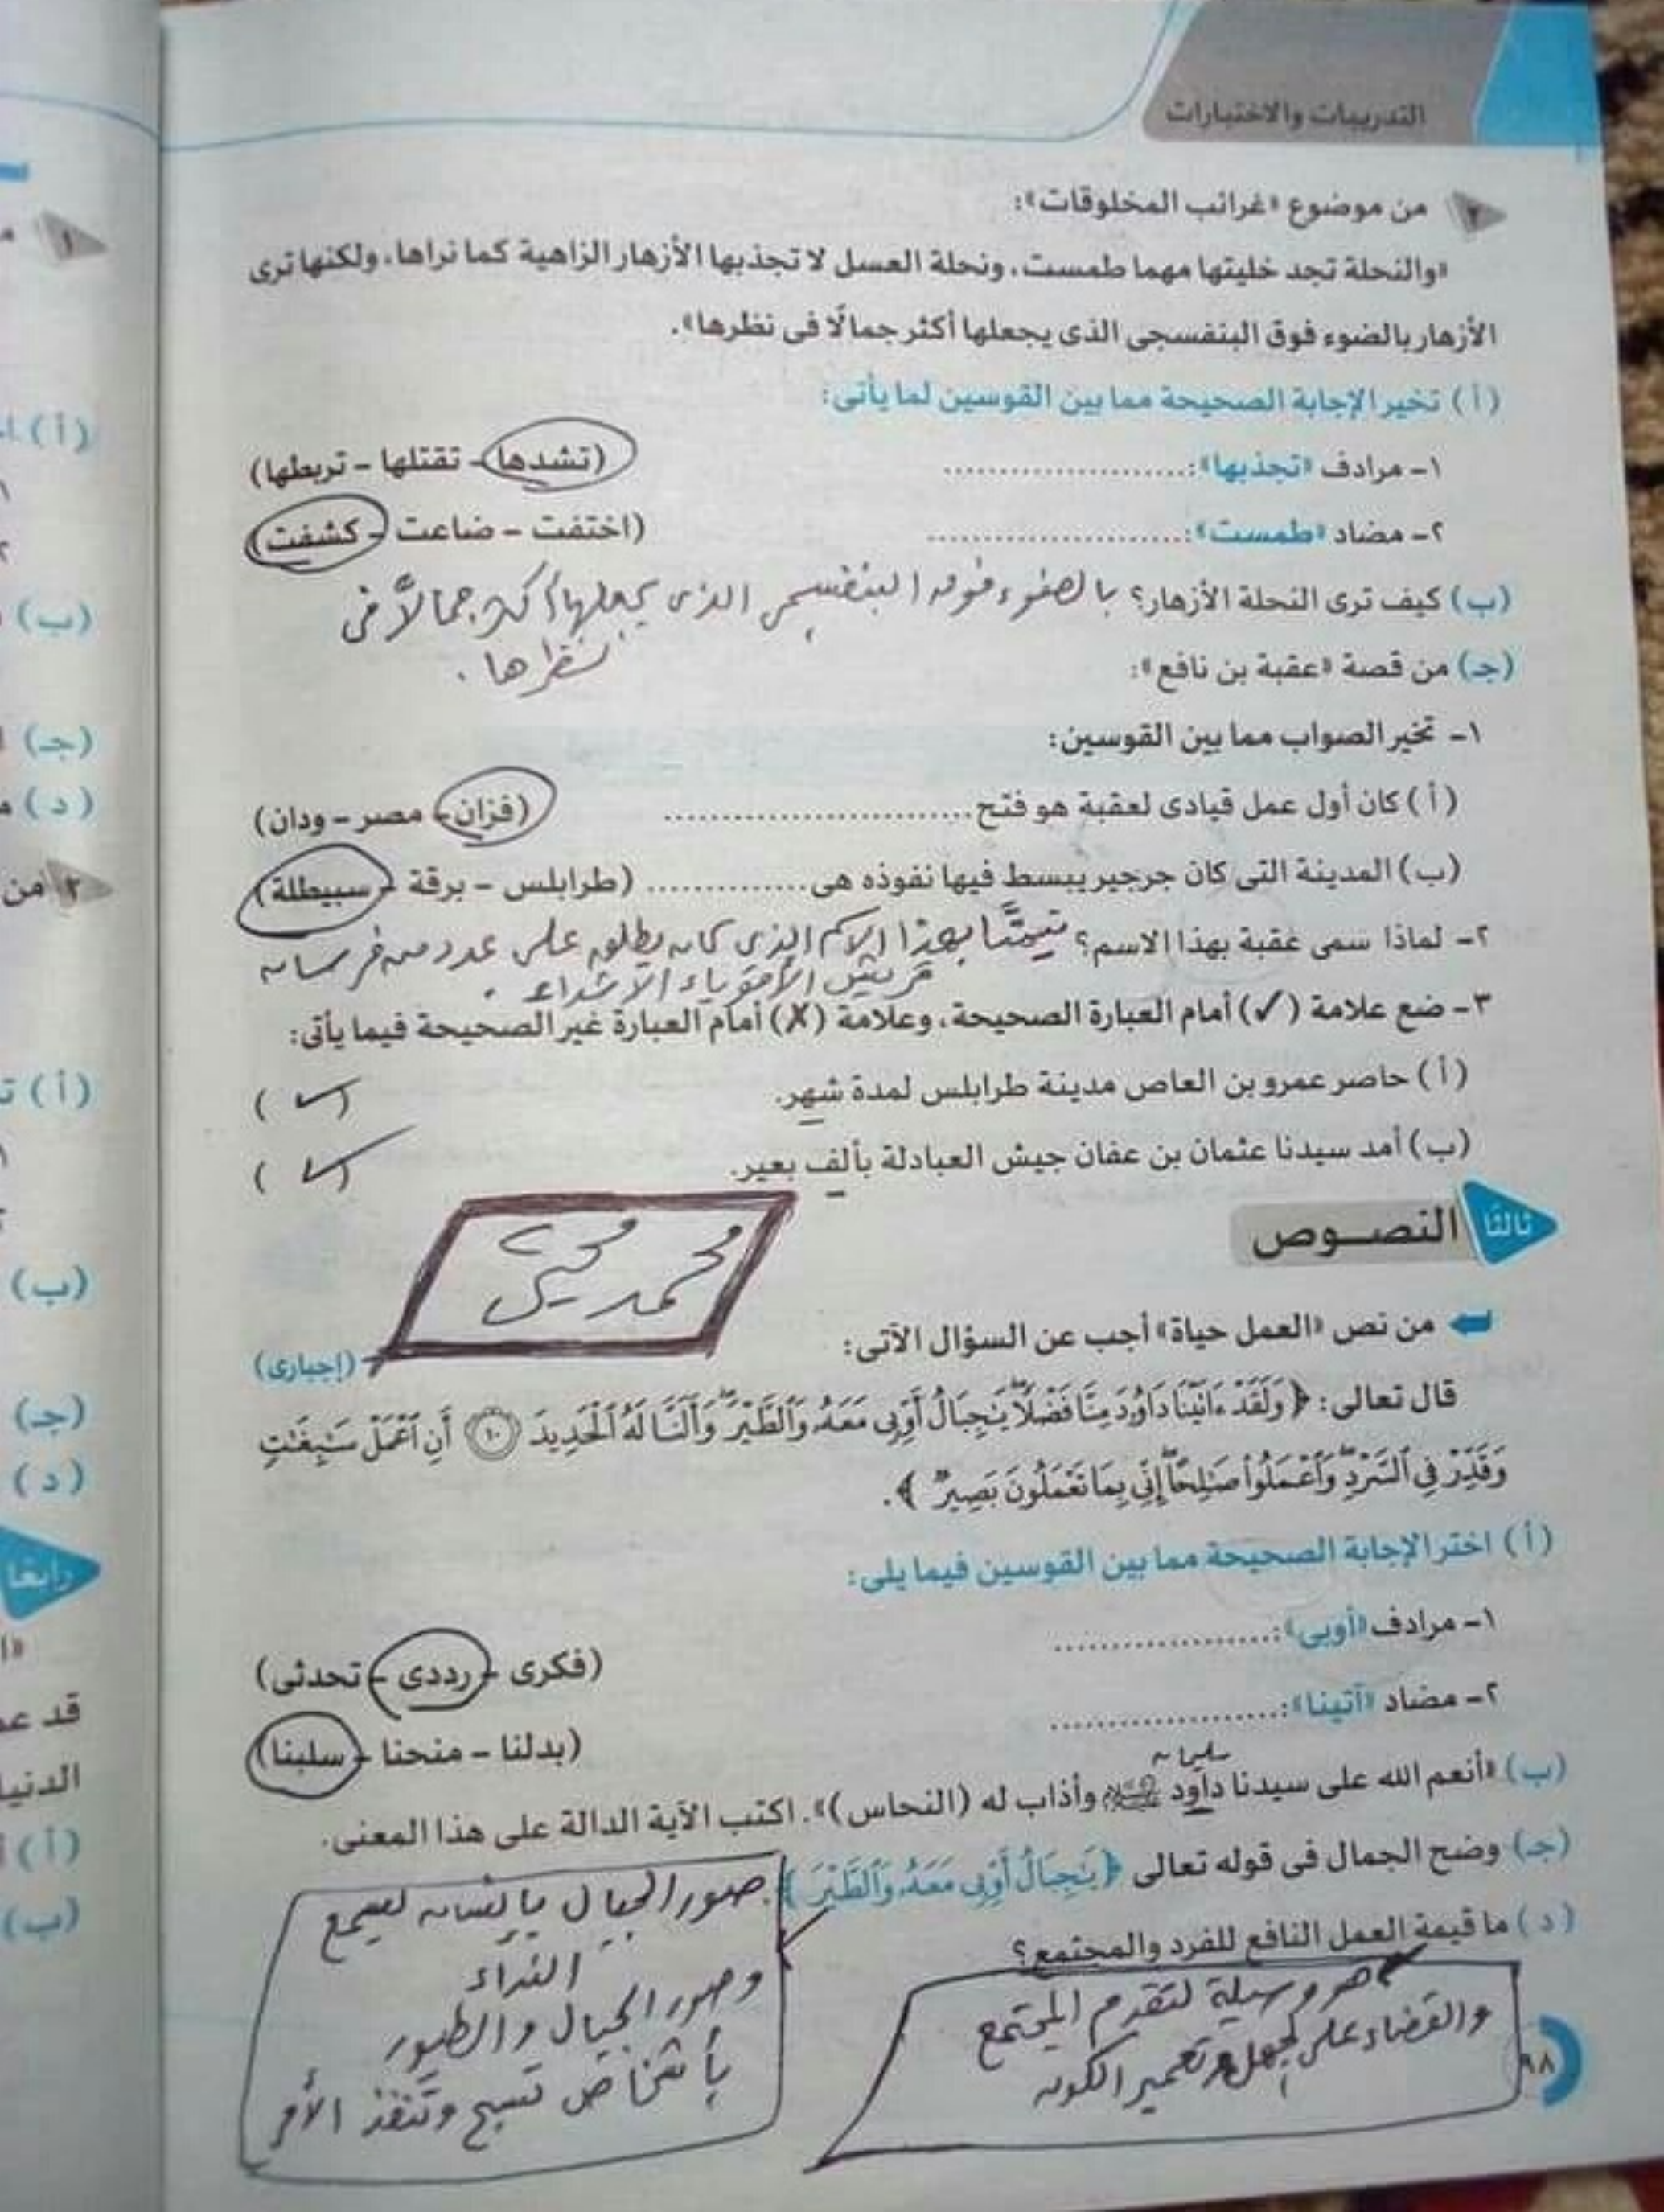 التدريبات والاختبارات
٢ من موضوع «غرائب المخلوقات»:
«والنحلة تجد خليتها مهما طمست، ونحلة العسل لا تجذبها الأزهار الزاهية كما نراها، ولكنها ترى
الأزهار بالضوء فوق البنفسجى الذى يجعلها أكثر جمالًا فى نظرها».
(أ) تخير الإجابة الصحيحة مما بين القوسين لما يأتى:
١- مرادف «تجذبها»: ........................ (تشدها - تقتلها - تربطها)
٢- مضاد «طمست»: ........................ (اختفت - ضاعت - كشفت)
(ب) كيف ترى النحلة الأزهار؟ بالضوء فوق البنفسجى الذى يجعلها أكثر جمالاً فى
نظرها.
(جـ) من قصة «عقبة بن نافع»:
١- تخير الصواب مما بين القوسين:
(أ) كان أول عمل قيادى لعقبة هو فتح ........................ (فزان - مصر - ودان)
(ب) المدينة التى كان جرجير يبسط فيها نفوذه هى ............... (طرابلس - برقة - سبيطلة)
٢- لماذا سمى عقبة بهذا الاسم؟ تيمنًا بهذا الاسم الذى كان يطلق على عدد من فرسان
قريش الأقوياء الأشداء.
٣- ضع علامة (✓) أمام العبارة الصحيحة، وعلامة (✗) أمام العبارة غير الصحيحة فيما يأتى:
(أ) حاصر عمرو بن العاص مدينة طرابلس لمدة شهر. (✓)
(ب) أمد سيدنا عثمان بن عفان جيش العبادلة بألف بعير. (✓)
ثالثًا النصوص
محمد محيى
من نص «العمل حياة» أجب عن السؤال الآتى: (إجبارى)
قال تعالى: ﴿ وَلَقَدْ ءَاتَيْنَا دَاوُۥدَ مِنَّا فَضْلًا يَٰجِبَالُ أَوِّبِى مَعَهُۥ وَٱلطَّيْرَ وَأَلَنَّا لَهُ ٱلْحَدِيدَ ١٠ أَنِ ٱعْمَلْ سَٰبِغَٰتٍ
وَقَدِّرْ فِى ٱلسَّرْدِ وَٱعْمَلُوا۟ صَٰلِحًا إِنِّى بِمَا تَعْمَلُونَ بَصِيرٌ ﴾.
(أ) اختر الإجابة الصحيحة مما بين القوسين فيما يلى:
١- مرادف «أوبى»: ..................... (فكرى - رددى - تحدثى)
٢- مضاد «آتينا»: ..................... (بدلنا - منحنا - سلبنا)
سليمان
(ب) «أنعم الله على سيدنا داود ﷺ وأذاب له (النحاس)». اكتب الآية الدالة على هذا المعنى.
(جـ) وضح الجمال فى قوله تعالى ﴿ يَٰجِبَالُ أَوِّبِى مَعَهُۥ وَٱلطَّيْرَ ﴾.
صور الجبال بإنسان يسمع
النداء
وصور الجبال والطيور
بأشخاص تسبح وتنفذ الأمر
(د) ما قيمة العمل النافع للفرد والمجتمع؟
هو وسيلة لتقدم المجتمع
والقضاء على الجهل وتعمير الكون
٩٨
١
(أ)
(ب)
(جـ)
(د)
٢ من
(أ)
(ب)
(جـ)
(د)
رابعًا
قد
الدنيا
(أ)
(ب)